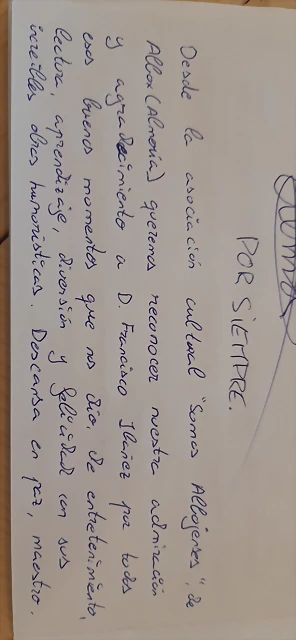 POR SIEMPRE.
Desde la asociación cultural "Somos Albojenses", de
Albox (Almería) queremos reconocer nuestra admiración
y agradecimiento a D. Francisco Ibañez por todos
esos buenos momentos que nos dio, de entretenimiento,
lectura, aprendizaje, diversión y felicidad con sus
increíbles obras humorísticas. Descansa en paz, maestro.